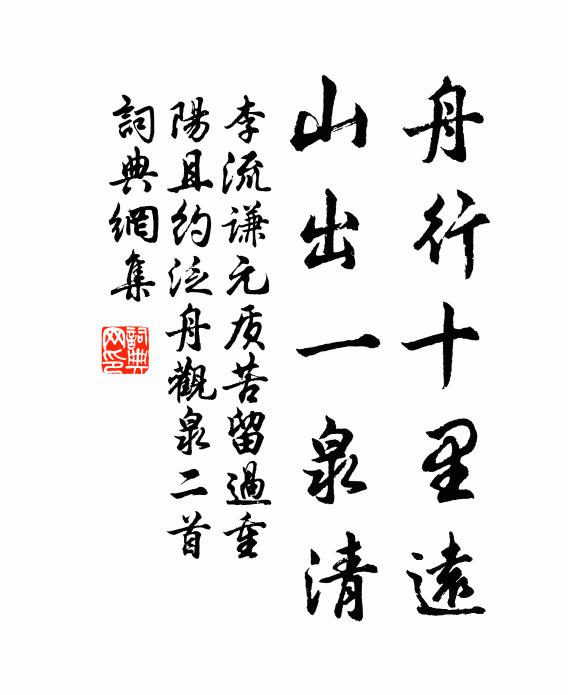 舟行十里遠
山出一泉清
李流谦元质苦留過重
陽且約泛舟觀泉二首
詞典網集
詞典网印